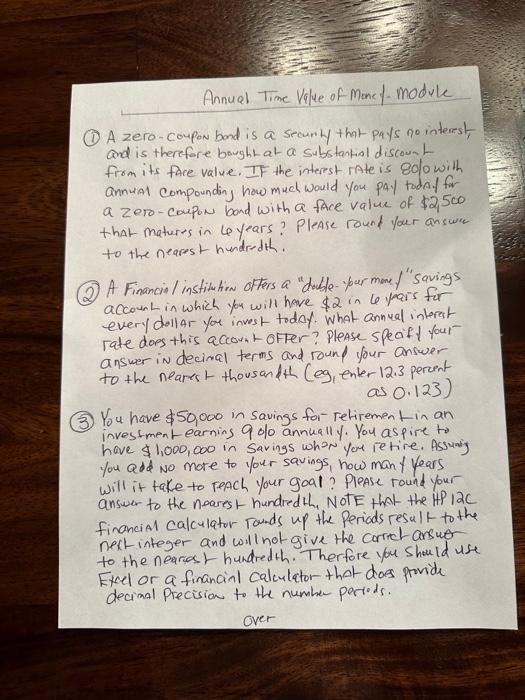 Annual Time Value of Money - Module
① A zero-coupon bond is a security that pays no interest,
and is therefore bought at a substantial discount
from its face value. IF the interest rate is 8% with
annual compounding how much would you pay today for
a zero-coupon bond with a face value of $2,500
that matures in 6 years? Please round your answer
to the nearest hundredth.
② A Financial institution offers a "double-your money" savings
account in which you will have $2 in 6 years for
every dollar you invest today. What annual interest
rate does this account offer? Please specify your
answer in decimal terms and round your answer
to the nearest thousandth (eg, enter 12.3 percent
as 0.123)
③ You have $50,000 in savings for retirement in an
investment earning 9% annually. You aspire to
have $1,000,000 in savings when you retire. Assuming
you add no more to your savings, how many years
will it take to reach your goal? Please round your
answer to the nearest hundredth, NOTE that the HP 12C
financial calculator rounds up the periods result to the
next integer and will not give the correct answer
to the nearest hundredth. Therfore you should use
Excel or a financial calculator that does provide
decimal precision to the number periods.
over